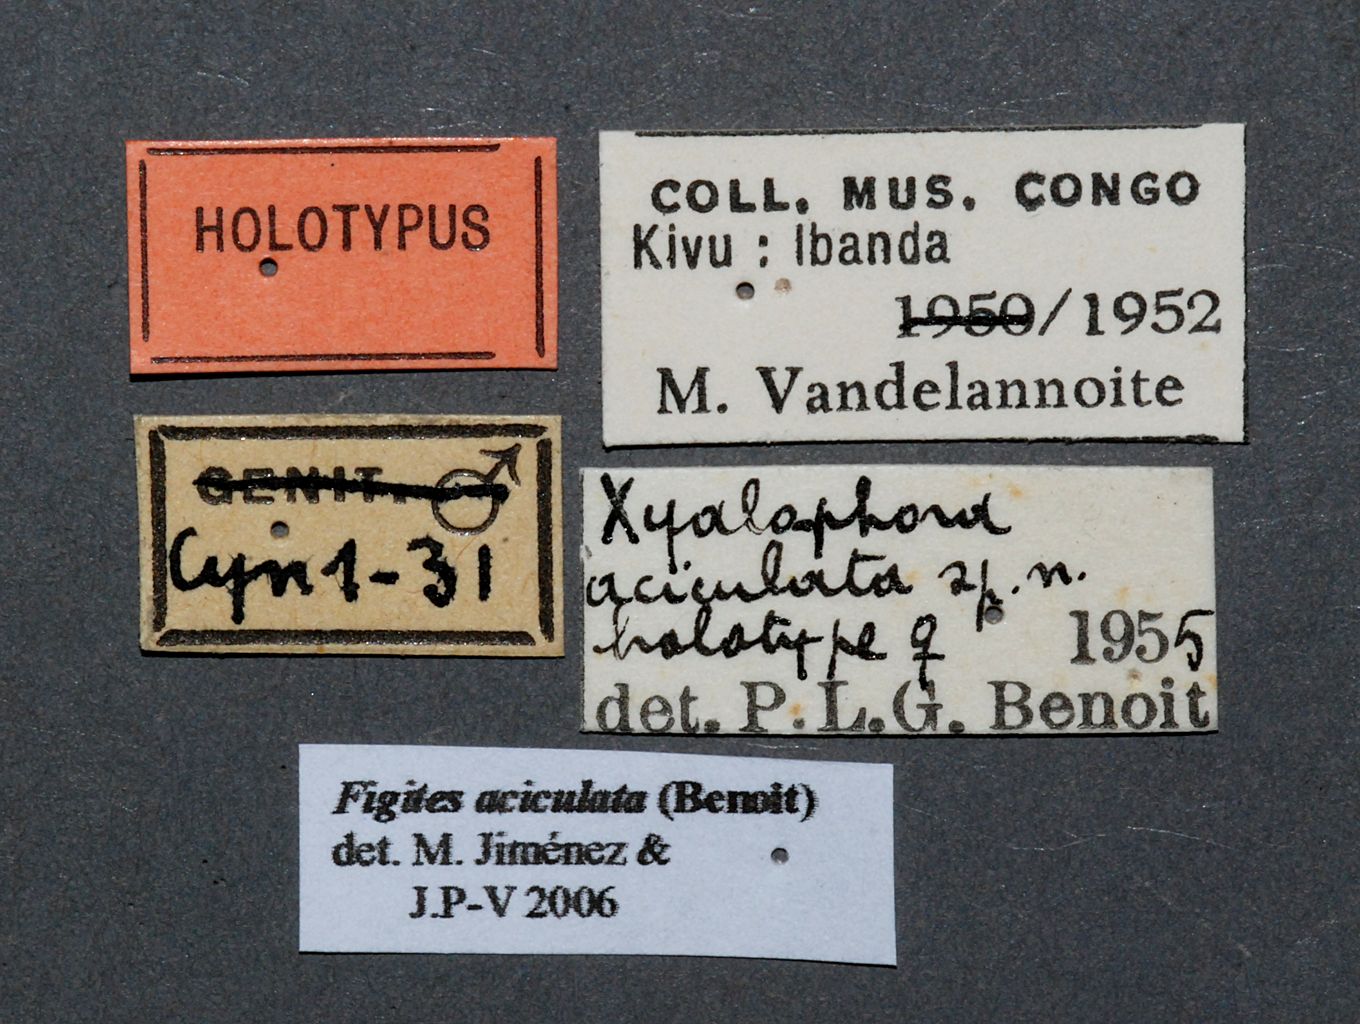 HOLOTYPUS
COLL. MUS. CONGO
Kivu : Ibanda
1950/1952
M. Vandelannoite
GENIT. ♂
Cyn1-31
Xyalophora
aciculata sp. n.
holotype ♀ 1955
det. P.L.G. Benoit
Figites aciculata (Benoit)
det. M. Jiménez &
J.P-V 2006